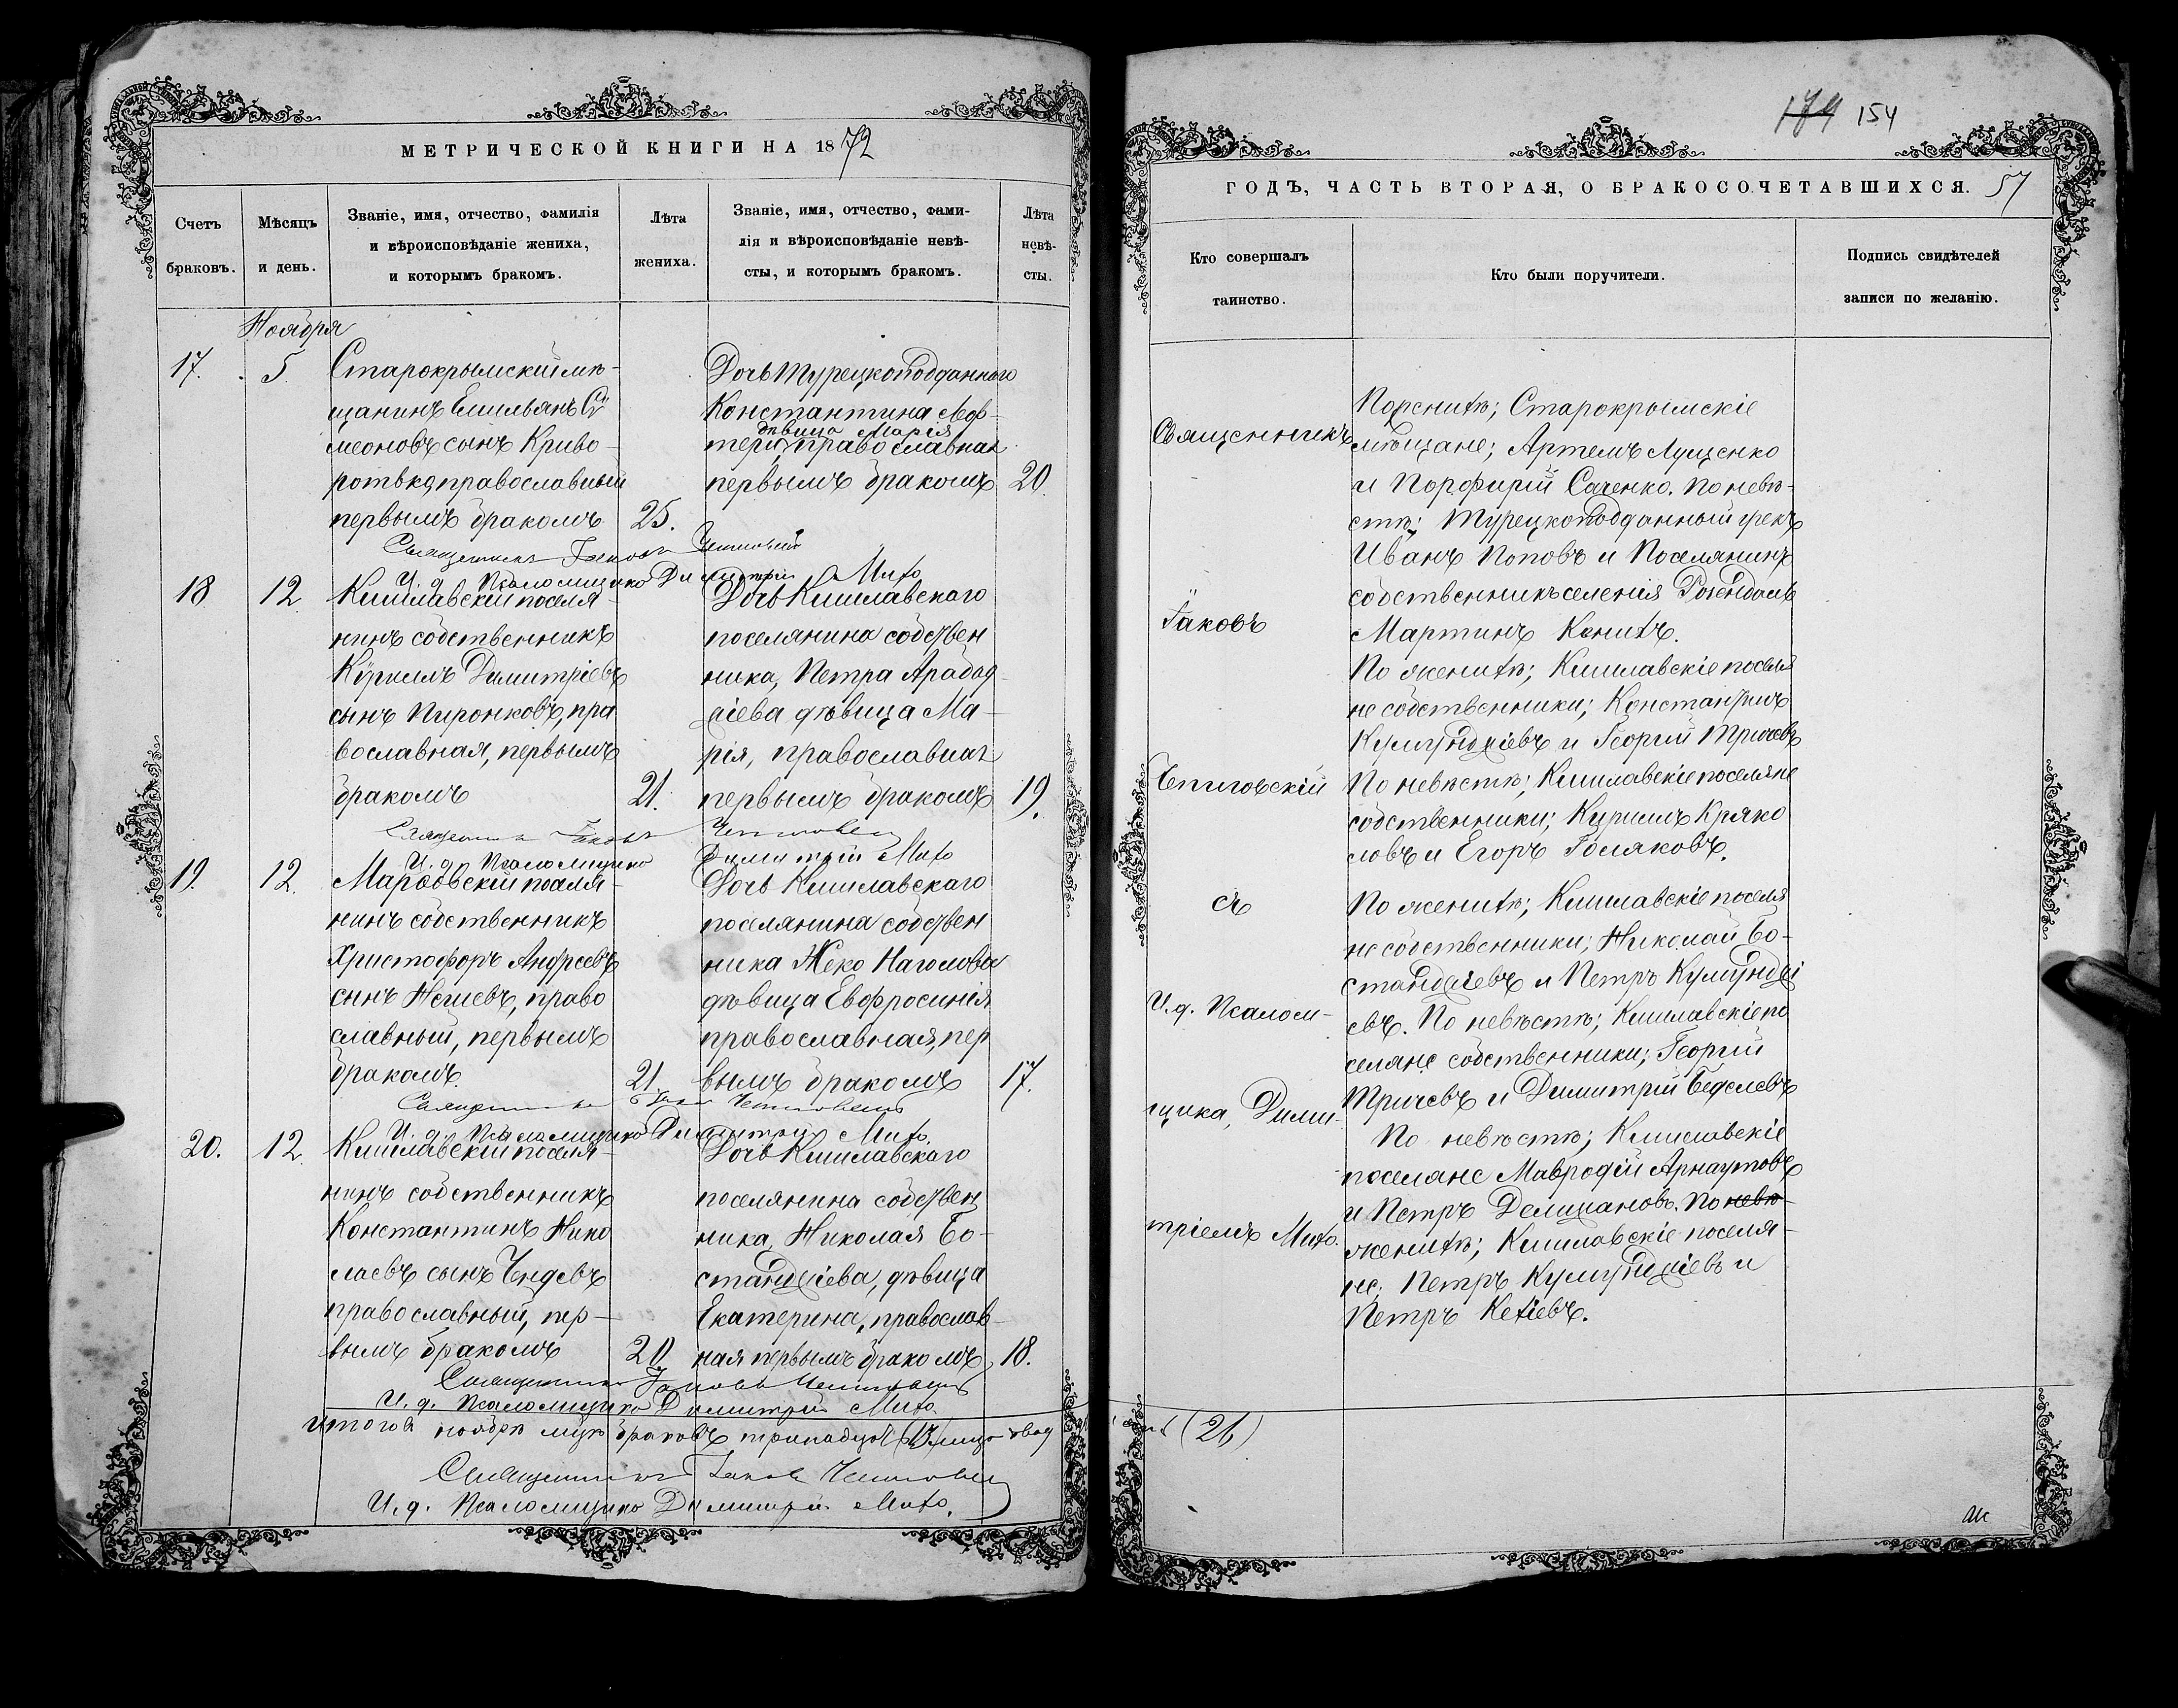 МЕТРИЧЕСКОЙ КНИГИ НА 1872
Счетъ браковъ.
Мѣсяцъ и день.
Званіе, имя, отчество, фамилія
и вѣроисповѣданіе жениха,
и которымъ бракомъ.
Лѣта
жениха.
Званіе, имя, отчество, фами-
лія и вѣроисповѣданіе невѣ-
сты, и которымъ бракомъ.
Лѣта
невѣ-
сты.
Ноября
17. 5.
Старокрымскій мѣ-
щанинъ Емильянъ Си
меоновъ сынъ Криво-
ротько, православный
первымъ бракомъ 25.
Дочь Турецкоподданного
Константина
дѣвица Марія
православная
первымъ бракомъ 20.
Священникъ Іаковъ
И. д. Псаломщика Димитрій
18 12.
Кишлавскій поселя-
нинъ собственникъ
Курилъ Димитріевъ
сынъ Пиронковъ, пра
вославная, первымъ
бракомъ 21.
Дочь Кишлавскаго
поселянина собствен
ника, Петра Арабад
жіева дѣвица Ма-
рія, православная
первымъ бракомъ 19.
Священникъ Іаковъ
И. д. Псаломщика Димитрій
19. 12.
поселя-
нинъ собственникъ
Христофоръ Андреевъ
сынъ Негиевъ, право
славный, первымъ
бракомъ. 21
Дочь Кишлавскаго
поселянина собствен
ника Жеко Наголова
дѣвица Евфросинія
православная, пер
вымъ бракомъ 17.
Священникъ
И. д. Псаломщика Димитрій
20. 12.
Кишлавскій поселя-
нинъ собственникъ
Константинъ Нико
лаевъ сынъ Чендевъ
православный, пер-
вымъ бракомъ 20
Дочь Кишлавскаго
поселянина собствен
ника, Николая Бо-
станджіева, дѣвица
Екатерина, православ-
ная первымъ бракомъ, 18.
Священникъ Іаковъ
И. д. Псаломщика Димитрій
Итого въ ноябрѣ мцѣ браковъ тринадцать
Священникъ Іаковъ
И. д. Псаломщика Димитрій
174 154
ГОДЪ, ЧАСТЬ ВТОРАЯ, О БРАКОСОЧЕТАВШИХСЯ. 57
Кто совершалъ
таинство.
Кто были поручители.
Подпись свидѣтелей
записи по желанію.
Священникъ
Іаковъ
Чепиговскій
съ
И. д. Псалом-
щика, Дими-
тріемъ
По женихѣ; Старокрымскіе
мѣщане; Артемъ Луценко
и Порфирій Саченко. По невѣ-
стѣ; Турецкоподданный грекъ
Иванъ Поповъ и Поселянинъ
собственникъ селенія Розендаль
Мартинъ
По женихѣ; Кишлавскіе поселя
не собственники; Константинъ
Кумунджіевъ и Георгій Тричевъ
По невѣстѣ; Кишлавскіе поселяне
собственники; Курилъ Кряко
ловъ и Егоръ Голяковъ.
По женихѣ; Кишлавскіе поселя
не собственники; Николай Бо-
станджіевъ и Петръ Кумунджі
евъ. По невѣстѣ; Кишлавскіе по
селяне собственники; Георгій
Тричевъ и Димитрій Беделевъ
По невѣстѣ; Кишлавскіе
поселяне Мавродій Арнаутовъ
и Петръ Делижановъ. По невѣ-
женихѣ; Кишлавскіе поселя-
не; Петръ Кумунджіевъ и
Петръ Кехіевъ.
(26)